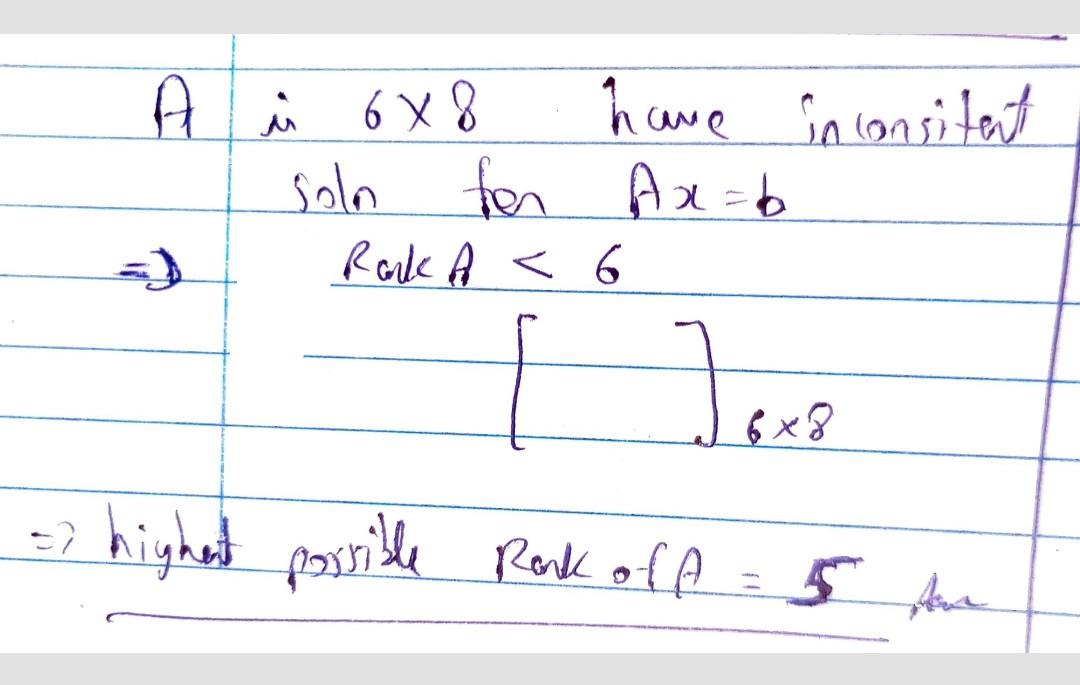 A is 6×8 have inconsitent
soln for Ax=b
=> Rank A < 6
[ ] 6×8
=> highest possible Rank of A = 5 Ans